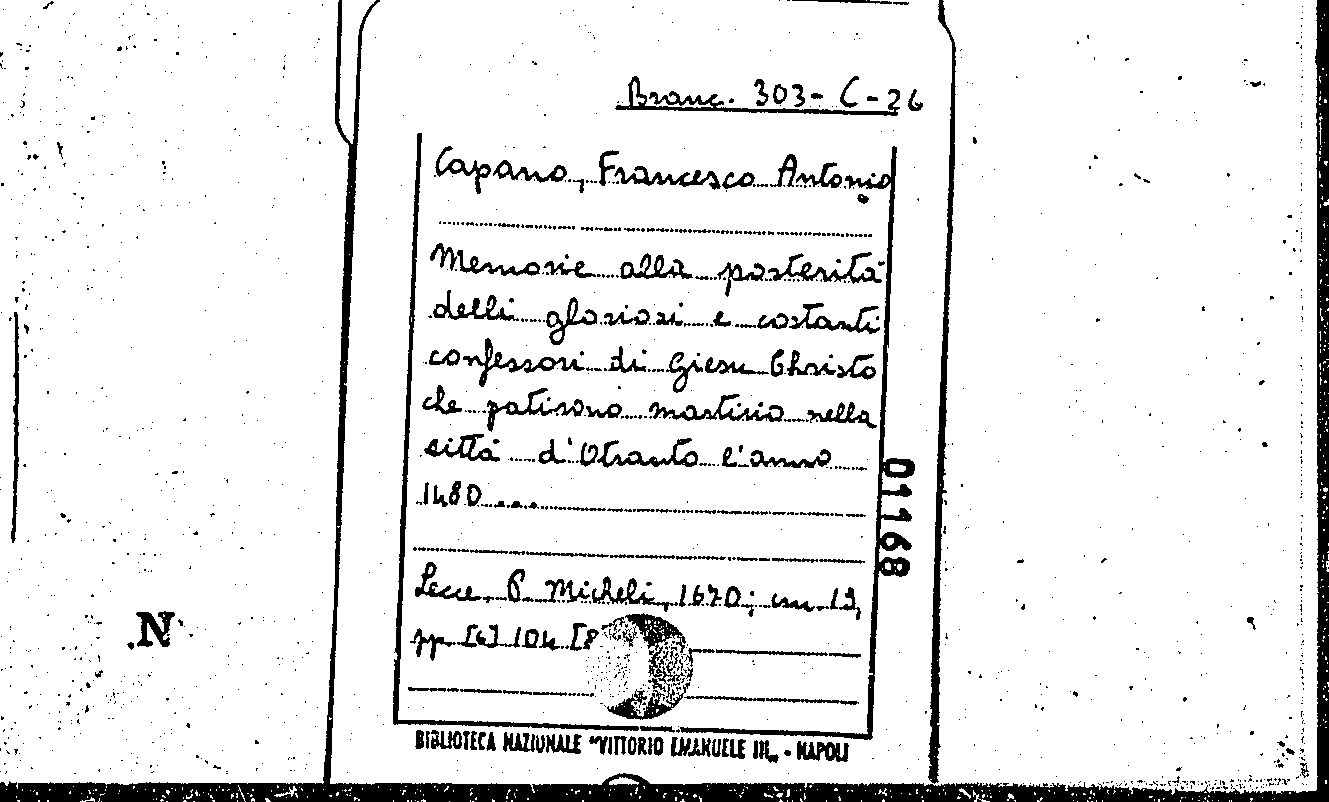 Branc. 303-C-26
Capano, Francesco Antonio
Memorie alla posterità
delli gloriosi e costanti
confessori di Giesu Christo
che patirono martirio nella
città d'Otranto l'anno
1480...
Lecce, P. Micheli, 1670; cm. 19,
pp [6] 104 [8]
BIBLIOTECA NAZIONALE "VITTORIO EMANUELE III" - NAPOLI
01168
N